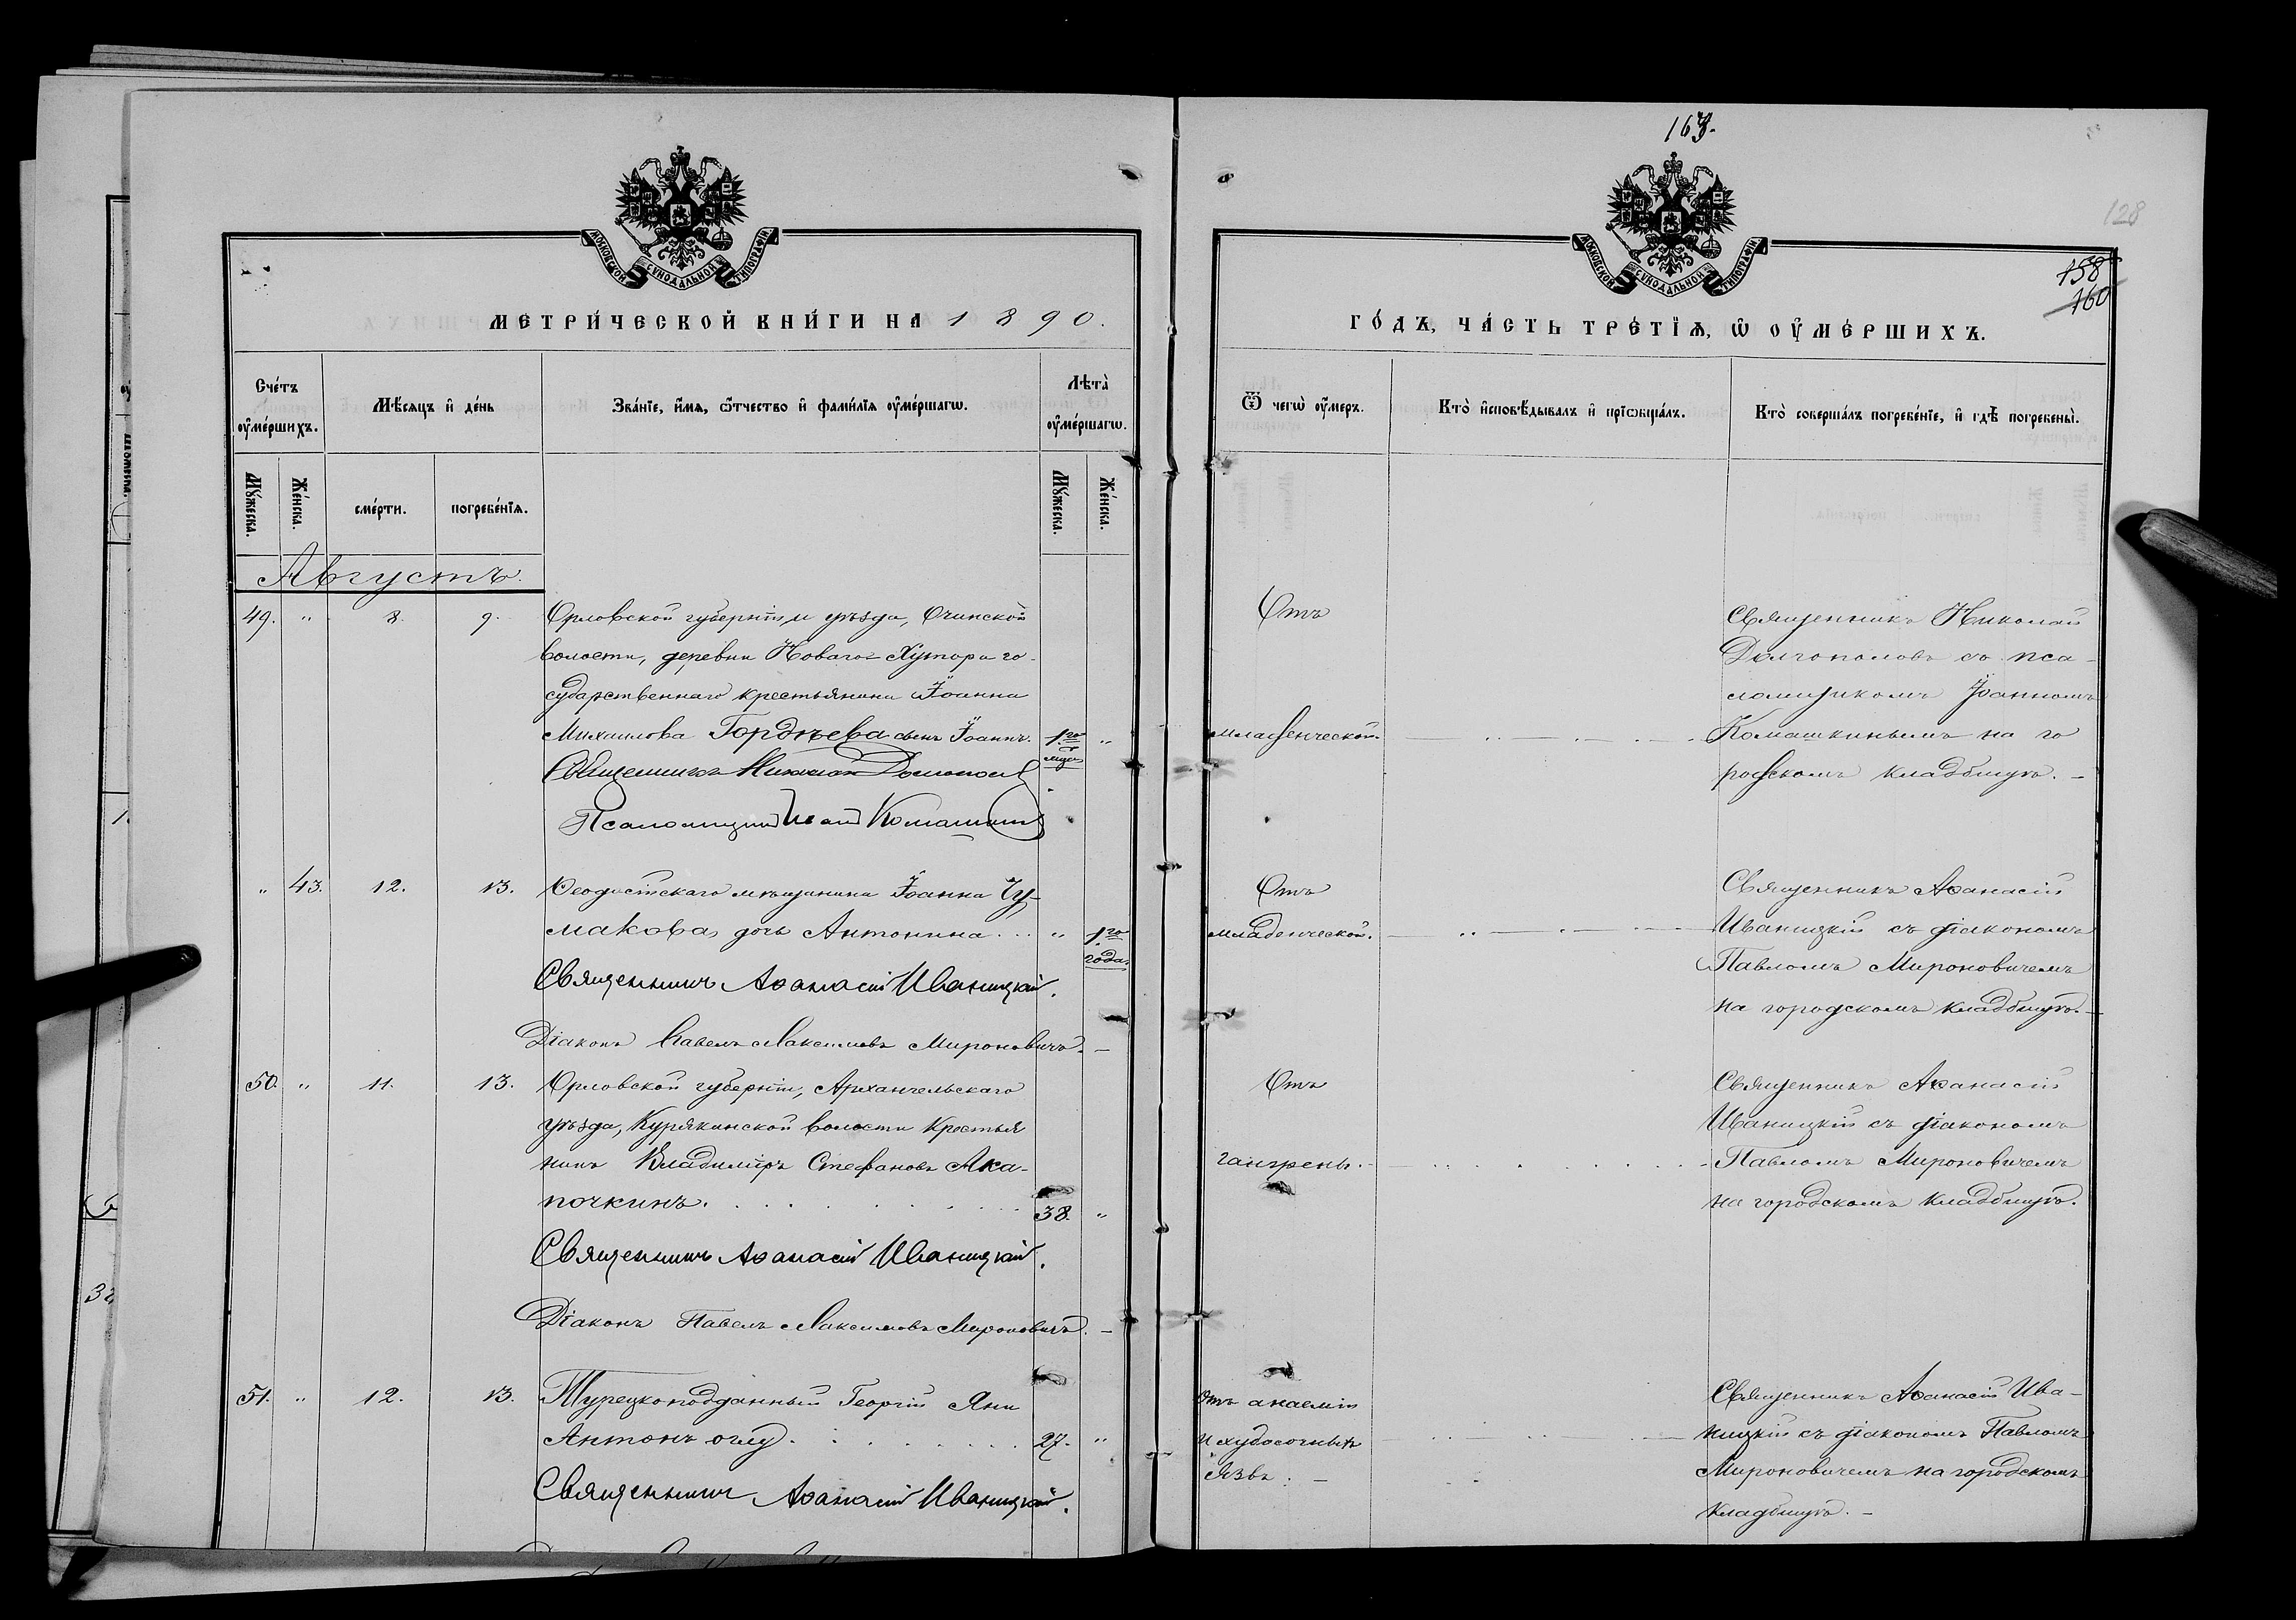 163.
128
158
160
МОСКОВСКОЙ СѴНОДАЛЬНОЙ ТИПОГРАФІИ
МОСКОВСКОЙ СѴНОДАЛЬНОЙ ТИПОГРАФІИ
МЕТРИ́ЧЕСКОЙ КНИ́ГИ НА 1890.
ГО́ДЪ, ЧА́СТЬ ТРЕ́ТЇѦ, Ѡ҆ ОУ҆МЕ́РШИХЪ.
Сче́тъ оу҆ме́ршихъ.
Мѣ́сяцъ и҆ де́нь
Зва́нїе, и҆́мя, ѻ҆́тчество и҆ фами́лїя оу҆ме́ршагѡ.
Лѣта̀ оу҆ме́ршагѡ.
Ѿ чегѡ̀ оу҆́меръ.
Кто̀ и҆сповѣ́дывалъ и҆ прїѡбща́лъ.
Кто̀ соверша́лъ погребе́нїе, и҆ гдѣ̀ погребены̀.
Мꙋ́жеска.
Же́нска.
сме́рти.
погребе́нїя.
Мꙋ́жеска.
Же́нска.
Августъ.
49. " 8. 9. Орловской губерніи, и уѣзда,
волости, деревни Новаго Хутора го-
сударственнаго крестьянина Іоанна
Михаилова Гордѣева сынъ Іоаннъ. 1го мѣс "
Священникъ Николай Долгополовъ
Псаломщикъ Комашкинъ
Отъ
младенческой.
Священникъ Николай
Долгополовъ съ пса-
ломщикомъ Іоанномъ
Комашкинымъ на го
родскомъ кладбищѣ. –
" 43. 12. 13. Ѳеодосійскаго мѣщанина Іоанна Чу-
макова дочь Антонина . . . " 1го года.
Священникъ Аѳанасій Иваницкій.
Діаконъ Павелъ Максимовъ Мироновичъ. –
Отъ
младенческой.
Священникъ Аѳанасій
Иваницкій съ діакономъ
Павломъ Мироновичемъ
на городскомъ кладбищѣ. –
50. " 11. 13. Орловской губерніи, Архангельскаго
уѣзда, Курякинской волости крестья
нинъ Владиміръ Стефановъ Ака-
почкинъ. 38. "
Священникъ Аѳанасій Иваницкій.
Діаконъ Павелъ Максимовъ Мироновичъ. –
Отъ
гангрены.
Священникъ Аѳанасій
Иваницкій съ діакономъ
Павломъ Мироновичемъ
на городскомъ кладбищѣ.
51. " 12. 13. Турецкоподданный Георгій Яни
Антонъ оглу. 27. "
Священникъ Аѳанасій Иваницкій.
Отъ анеміи
и худосочныхъ
язвъ. –
Священникъ Аѳанасій Ива-
ницкій съ діакономъ Павломъ
Мироновичемъ на городскомъ
кладбищѣ. –